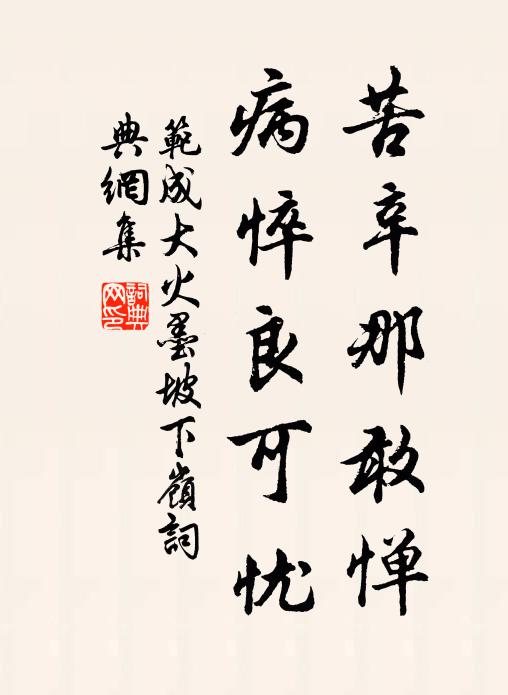 苦辛那敢惮
病悴良可忧
範成大火墨坡下嶺詞
典網集
詞典网印